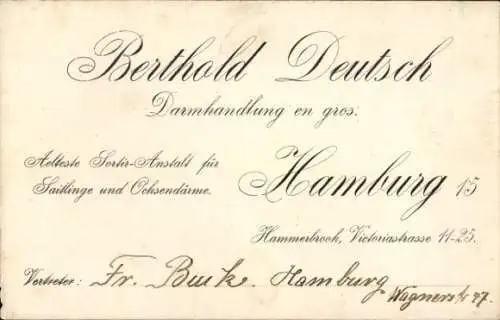 Berthold Deutsch
Darmhandlung en gros.
Aelteste Sortir-Anstalt für
Saitlinge und Ochsendärme.
Hamburg 15
Hammerbrook, Victoriastrasse 11-25.
Vertreter: Fr. Buck. Hamburg
Wagnerstr 47.